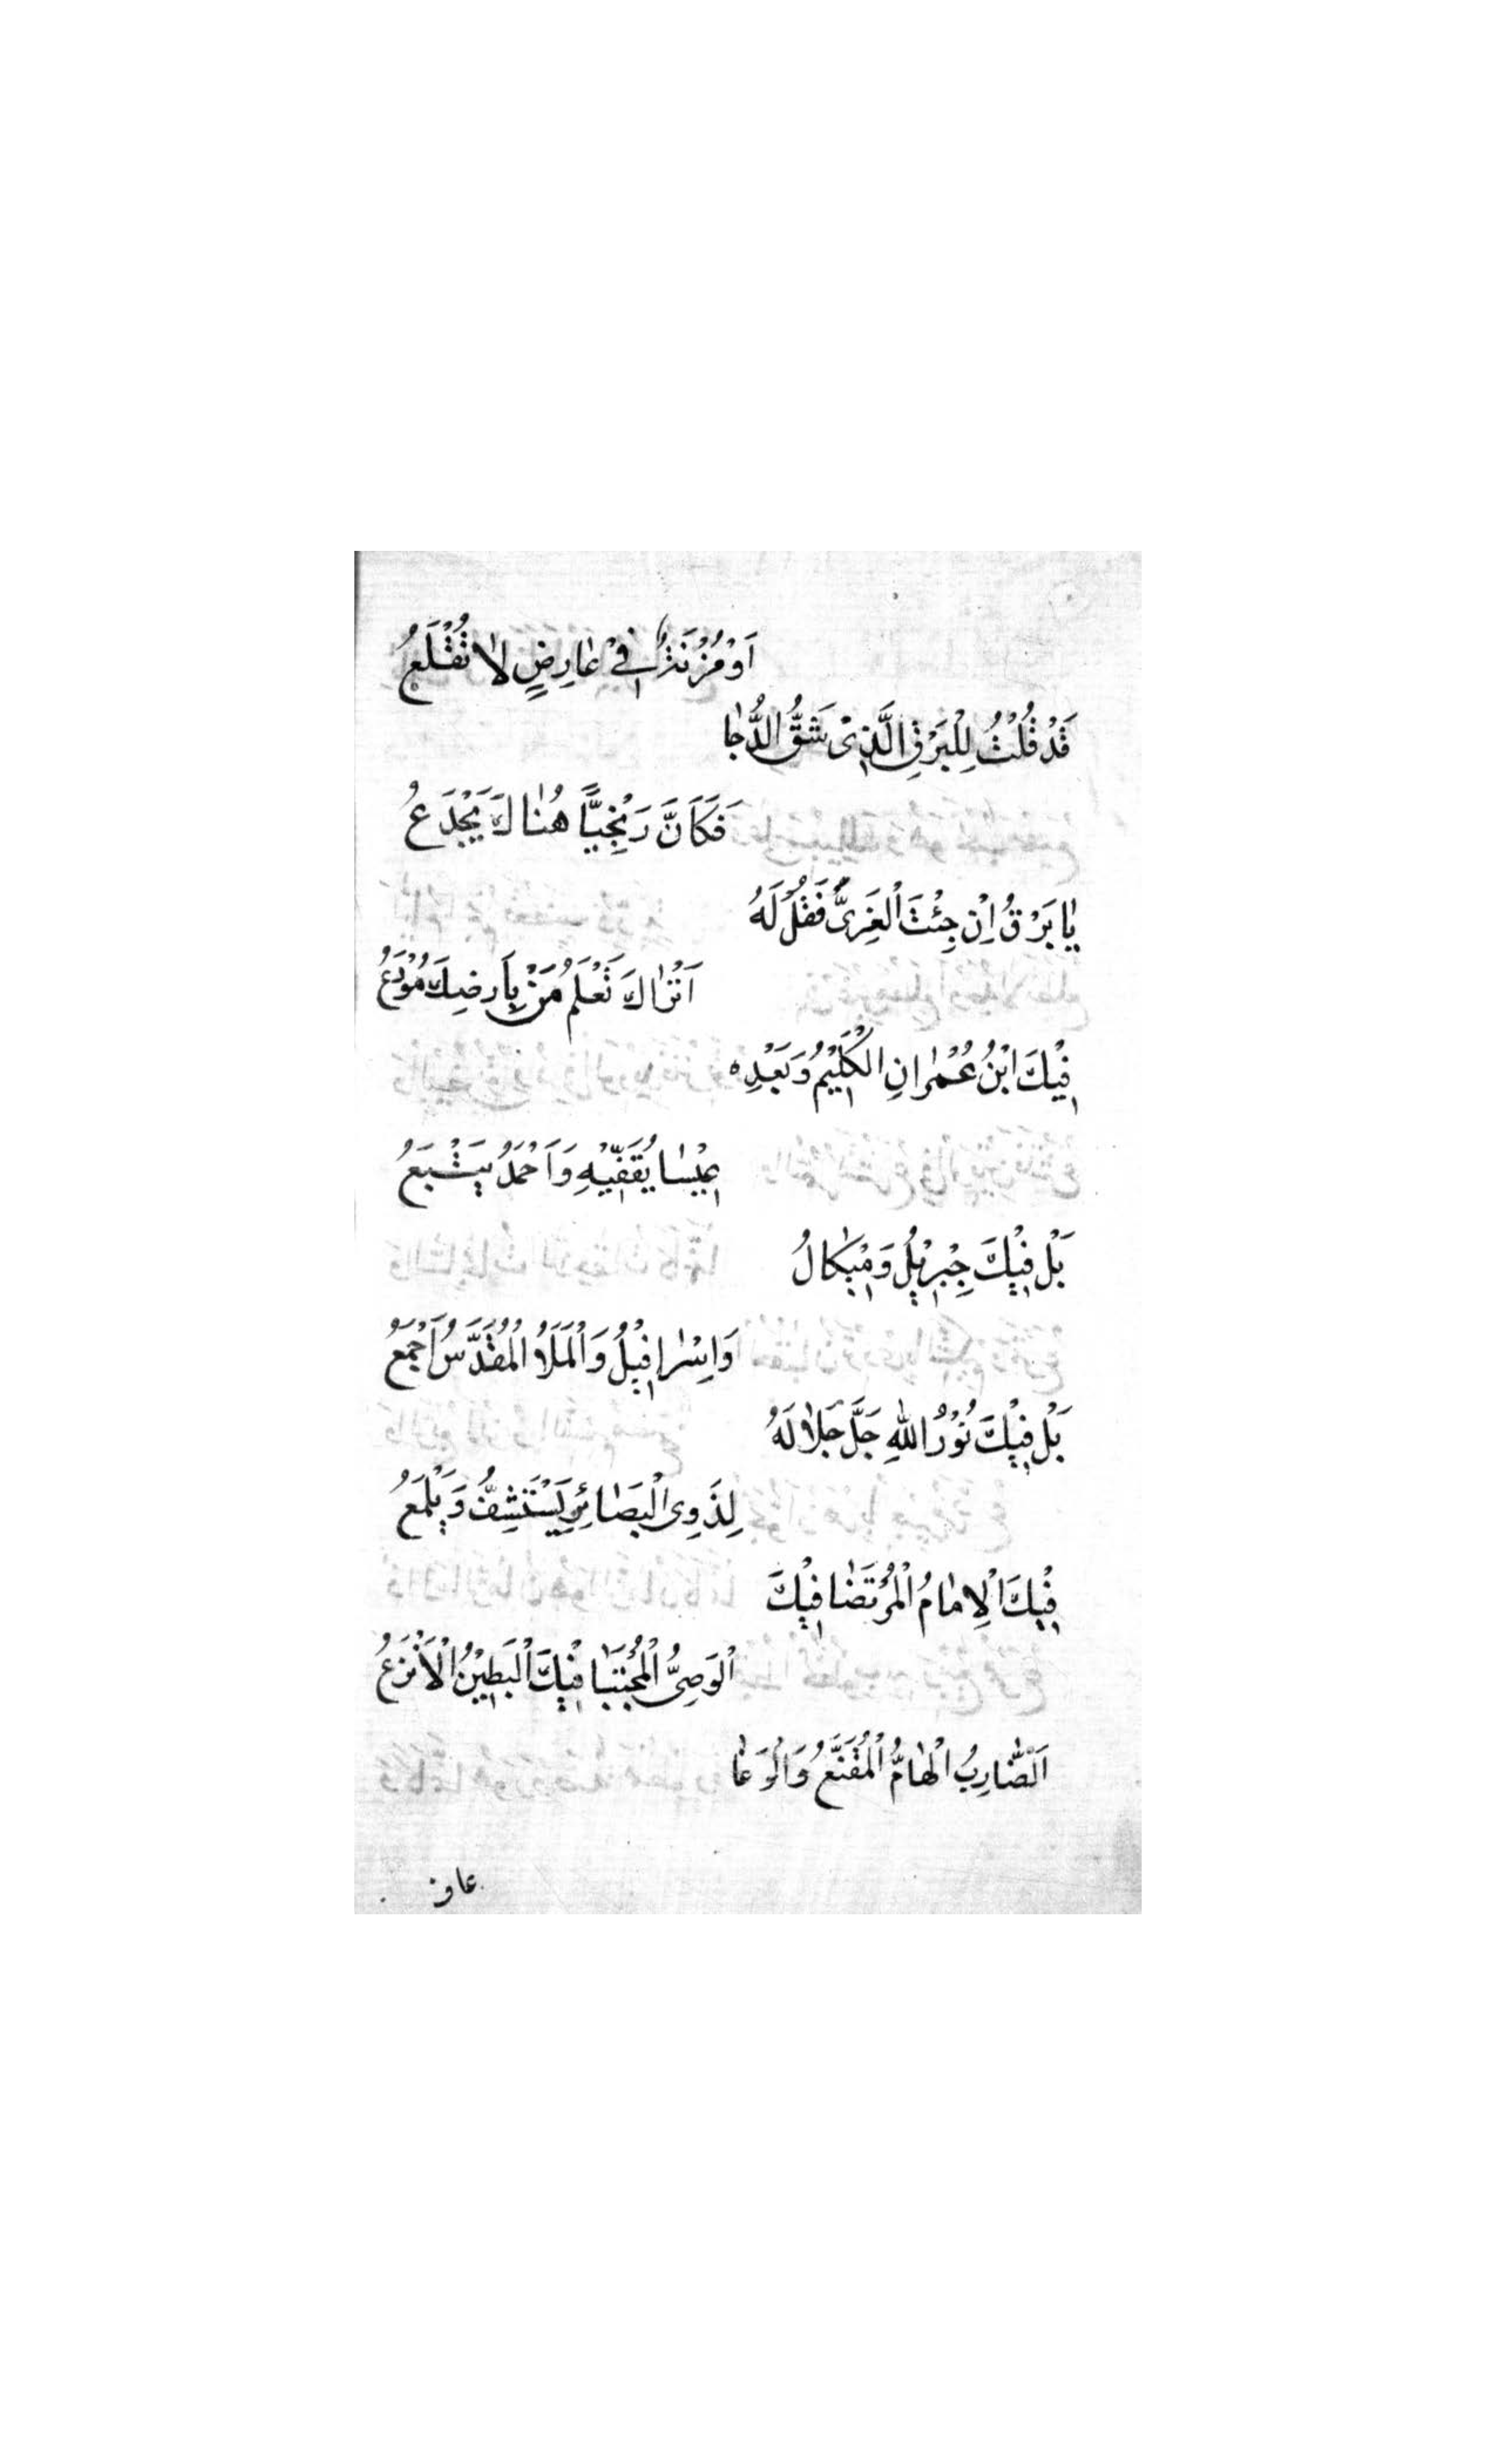 اَوْ مُزْنَةٌ فِىْ عَارِضٍ لَا تُقْلَعُ
قَدْ قُلْتُ لِلْبَرْقِ الَّذِىْ شَقُّ الدُّجَا
فَكَاَنَّ زَنْجِيًّا هُنَاكَ يَجْدَعُ
يَا بَرْقُ اِنْ جِئْتَ الْغَرِىَّ فَقُلْ لَهُ
اَتَرَاكَ تَعْلَمُ مَنْ بِاَرضِكَ مُوْدَعُ
فِيْكَ ابْنُ عُمْرَانِ الْكَلِيْمُ وَبَعْدِه
عِيْسَا يُقَفِّيْهِ وَاَحْمَدُ يَتْبَعُ
بَلْ فِيْكَ جِبْرِيْلُ وَمِيْكَالُ
وَاِسْرَافِيْلُ وَالْمَلَاُ الْمُقَدَّسُ اَجْمَعُ
بَلْ فِيْكَ نُوْرُ اللهِ جَلَّ جَلَالَهُ
لِذَوِى الْبَصَائِرِ يَسْتَشِفُّ وَيَلْمَعُ
فِيْكَ الْاِمَامُ الْمُرْتَضَا فِيْكَ
الْوَصِىُّ الْمُجْتَبَا فِيْكَ الْبَطِيْنُ الْاَنْزَعُ
اَلضَّارِبُ الْهَامُّ الْمُقَنَّعُ وَالْوَغَا